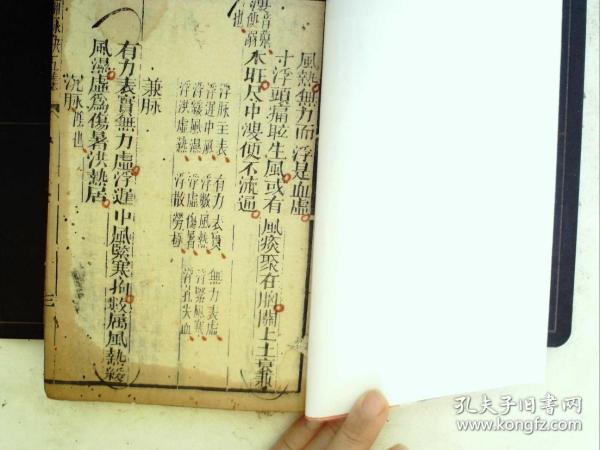 風熱無力而浮是血虛
寸浮頭痛眩生風或有風痰聚在胸關上土衰兼
木旺尺中溲便不流通
浮脉主表 有力表實 無力表虛
浮遲中風 浮數風熱 浮緊風寒
浮緩風濕 浮虛傷暑 浮芤失血
浮洪虛熱 浮散勞極
兼脉
有力表實無力虛浮遲中風緊寒拘數属風熱緩
風濕虛為傷暑洪熱居
沉脉
三
孔夫子旧书网
www.kongfz.com